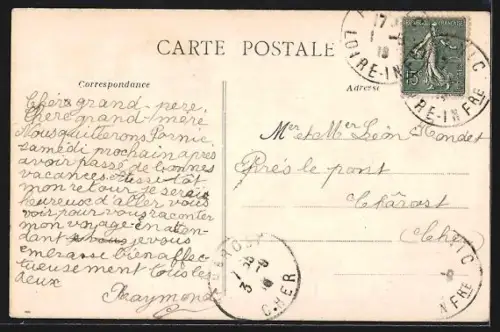 CARTE POSTALE
Correspondance
Adresse
Chère grand-père,
Chère grand-mère
Nous quitterons Pornic
samedi prochain après
avoir passé de bonnes
vacances. Aussitôt
mon retour je serais
heureux d'aller vous
voir pour vous raconter
mon voyage en atten-
dant je vous
embrasse bien affec-
tueusement tous les
deux
Raymond
Mr et Mer Léon Mondet
Près le pont
Chârost
(Cher)
LOIRE-INF
RE-INFRE
CHAROST
CHER
NIC
NFRE